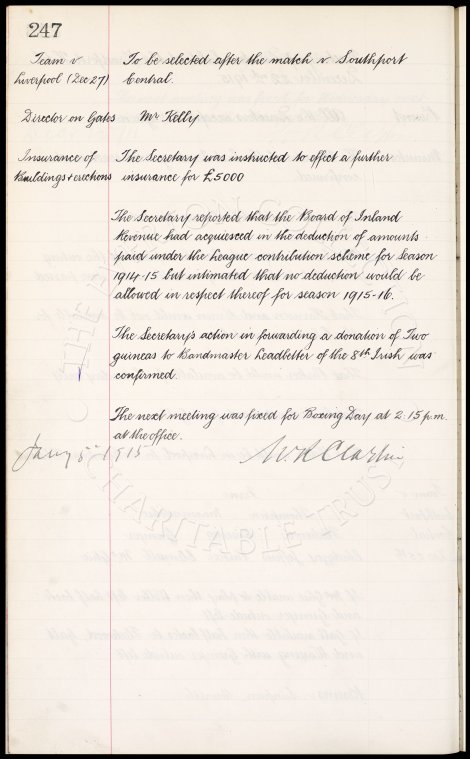 247
Team v To be selected after the match v. Southport
Liverpool (Dec 27) Central.
Director on Gates Mr Kelly
Insurance of The Secretary was instructed to effect a further
Buildings + erections insurance for £5000
The Secretary reported that the Board of Inland
Revenue had acquiesced in the deduction of amounts
paid under the League contribution scheme for season
1914-15 but intimated that no deduction would be
allowed in respect thereof for season 1915-16.
The Secretary's action in forwarding a donation of Two
guineas to Bandmaster Leadletter of the 8th Irish was
confirmed
The next meeting was fixed for Boxing Day at 2.15 p.m.
at the office.
Jany 5th 1915 W. R. Clayton
CHARITABLE TRUST